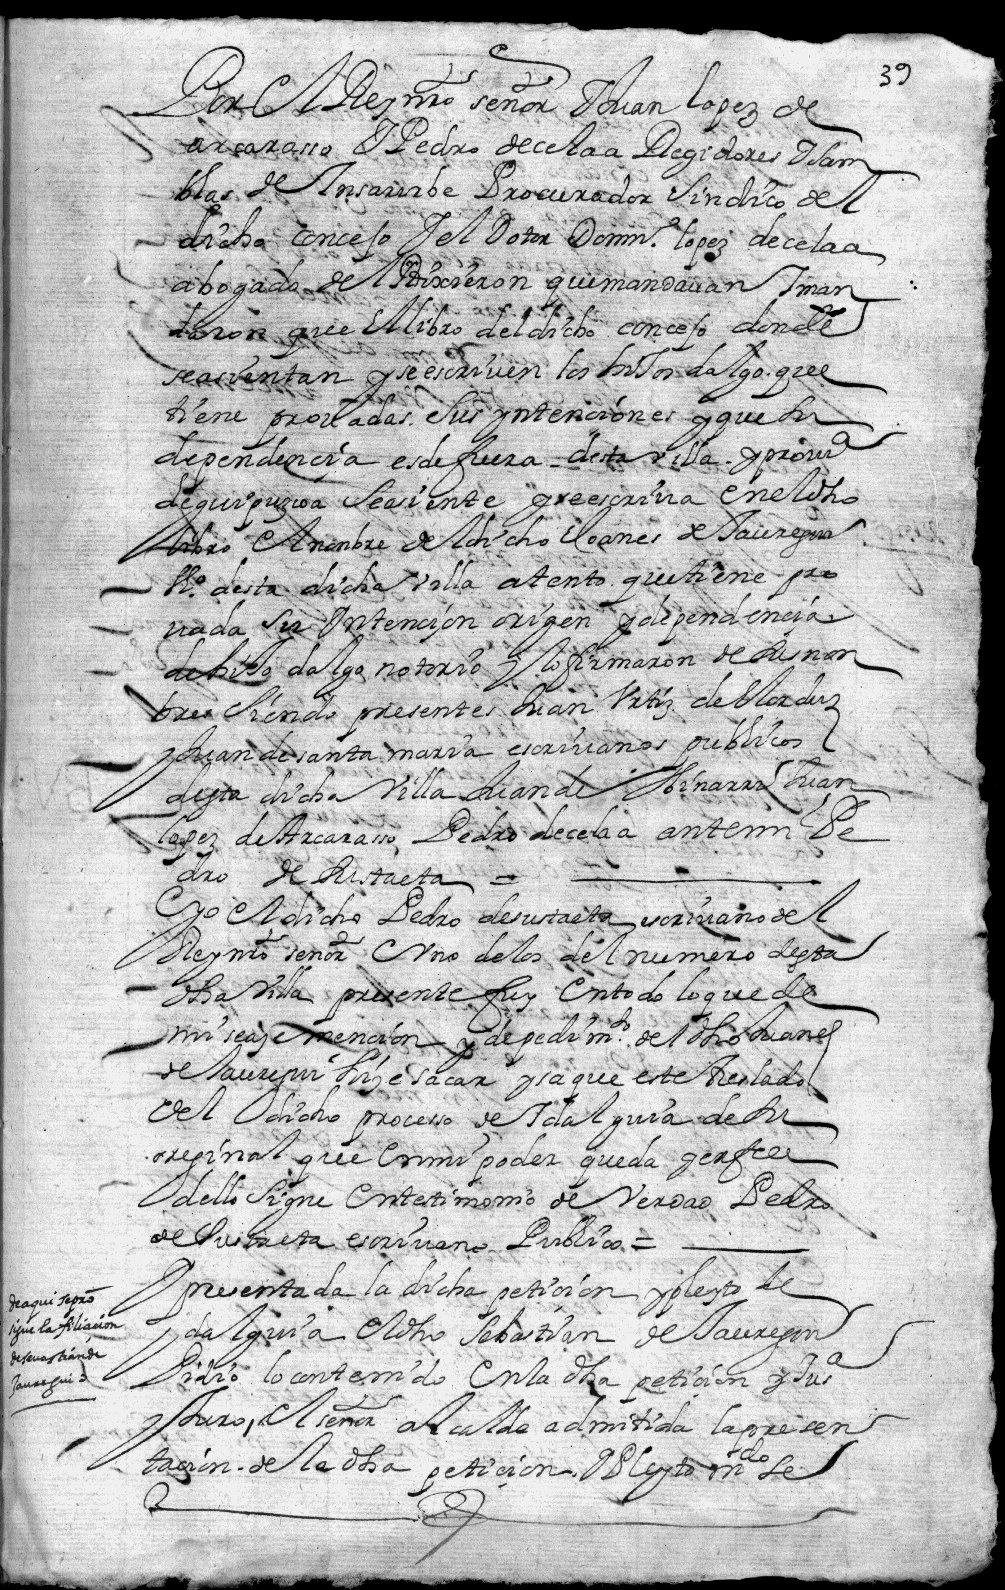 39
Por El Rey nro señor Y Juan lopez de
arcarasso Y Pedro de celaa Regidores Y Sam
blas de Insaurbe Procurador Sindico del
dicho concejo Y el Dotor Domin. lopez de celaa
abogado del dixieron que mandauan Y man
daron que El libro del dicho concejo donde
se asientan y se escriuen los hijos dalgo que
tiene prouadas sus yntenciones y que su
dependencia es de fuera desta villa y prouia
de guipuzcoa Se asiente y se escriua En el dho
libro El nonbre del dicho Joanes de Jauregui
Vo. desta dicha Villa atento que tiene pro
uada Su Intencion origen y dependencia
de hijo dalgo notorio y lo firmaron de sus non
bres Siendo presentes Juan Vrtiz de
y Juan de santa maria escriuanos publicos
desta dicha Villa Juan de Juan
lopez de Arcarasso Pedro de celaa ante mi Pe
dro de Sustaeta =
E yo El dicho Pedro de sustaeta escriuano del
Rey nro señor E vno de los del numero desta
dha Villa presente fuy En todo lo que de
mi se aze mencion y de pedimo. del dho Juanes
de Jauregui hize sacar y saque este treslado
del dicho processo de Idalguia de su
oreginal que En mi poder queda y en fee
dello Signe En testimonio de Verdad Pedro
de Sustaeta escriuano Publico =
Y presentada la dicha peticion y pleyto de
ydalguia El dho Sebastian de Jauregui
Pidio lo contenido En la dha peticion y Jusa
y Juro, El señor alcalde admitida la presen
tacion de la dha peticion Y Pleyto mdo Se
de aqui se pro
sigue la filiacion
de seuastian de
Jauregui